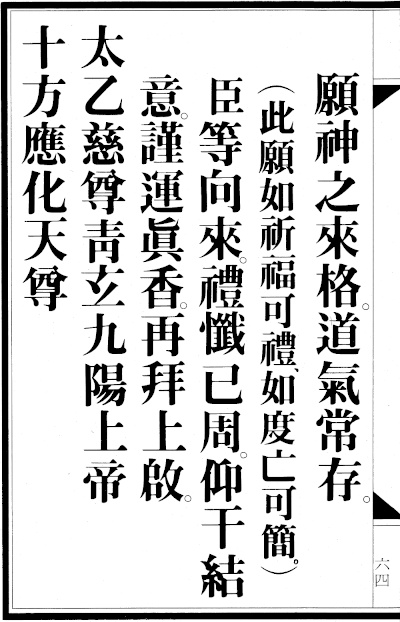 願神之來格。道氣常存。
（此願如祈福可禮、如度亡可簡。）
臣等向來。禮懺已周。仰干結
意。謹運眞香。再拜上啟。
太乙慈尊靑玄九陽上帝
十方應化天尊
六四